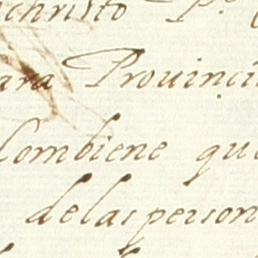 christo P.
ara Prouinci
Combiene que
delas person